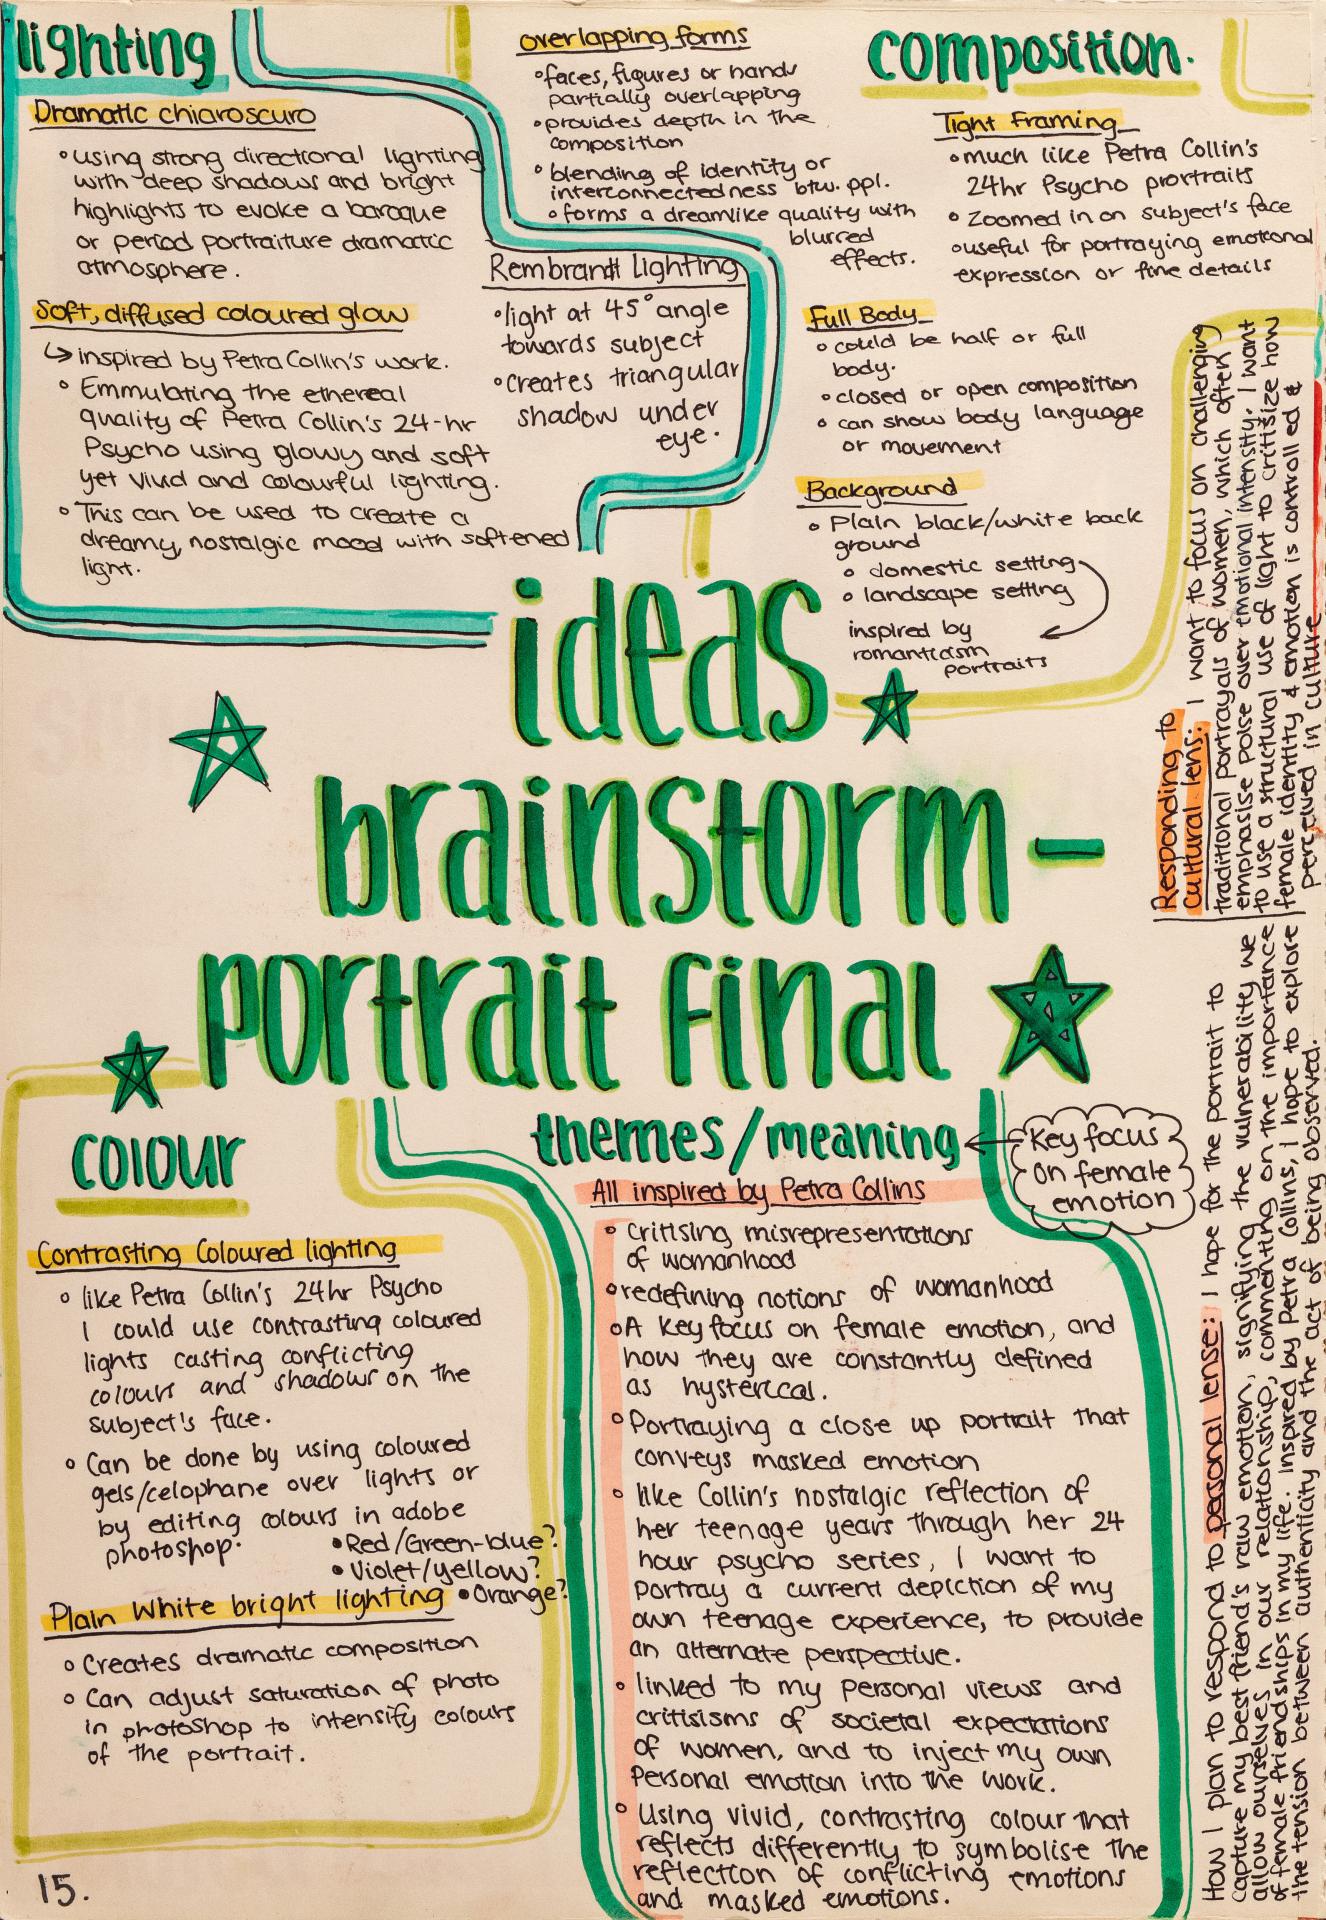 lighting
Dramatic chiaroscuro
• using strong directional lighting
with deep shadows and bright
highlights to evoke a baroque
or period portraiture dramatic
atmosphere.
Soft, diffused coloured glow
↳ inspired by Petra Collin's work.
• Emmulating the ethereal
quality of Petra Collin's 24-hr
Psycho using glowy and soft
yet vivid and colourful lighting.
• This can be used to create a
dreamy, nostalgic mood with softened
light.
Rembrant Lighting
• light at 45° angle
towards subject
• creates triangular
shadow under
eye.
overlapping forms
• faces, figures or hands
partially overlapping
• provides depth in the
composition
• blending of identity or
interconnectedness btw. ppl.
• forms a dreamlike quality with
blurred
effects.
composition.
Tight Framing
• much like Petra Collin's
24hr Psycho prortraits
• Zoomed in on subject's face
• useful for portraying emotional
expression or fine details
Full Body
• could be half or full
body.
• closed or open composition
• can show body language
or movement
Background
• Plain black/white back
ground
• domestic setting
• landscape setting
inspired by
romanticism
portraits
ideas
brainstorm -
portrait final
colour
Contrasting Coloured lighting
• like Petra Collin's 24hr Psycho
I could use contrasting coloured
lights casting conflicting
colours and shadows on the
subject's face.
• Can be done by using coloured
gels/celophane over lights or
by editing colours in adobe
photoshop.
• Red/Green-blue?
• Violet/yellow?
• Orange?
Plain White bright lighting
• Creates dramatic composition
• Can adjust saturation of photo
in photoshop to intensify colours
of the portrait.
themes/meaning
Key focus
on female
emotion
All inspired by Petra Collins
• Critising misrepresentations
of womanhood
• redefining notions of womanhood
• A key focus on female emotion, and
how they are constantly defined
as hysterical.
• Portraying a close up portrait that
conveys masked emotion
• like Collin's nostalgic reflection of
her teenage years through her 24
hour psycho series, I want to
portray a current depiction of my
own teenage experience, to provide
an alternate perspective.
• linked to my personal views and
critisisms of societal expectations
of women, and to inject my own
personal emotion into the work.
• Using vivid, contrasting colour that
reflects differently to symbolise the
reflection of conflicting emotions
and masked emotions.
Responding to
cultural lens: I want to focus on challenging
traditional portrayals of women, which often
emphasise poise over emotional intensity. I want
to use a structural use of light to critisize how
female identity & emotion is controlled &
perceived in culture
How I plan to respond to personal lense: I hope for the portrait to
capture my best friend's raw emotion, signifying the vulnerability we
allow ourselves in our relationship, commenting on the importance
of female friendships in my life. Inspired by Petra Collins, I hope to explore
the tension between authenticity and the act of being observed.
15.